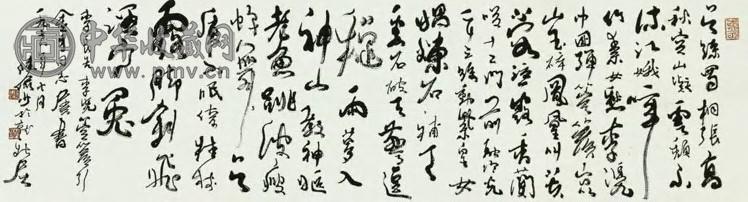 吴丝蜀桐张高
秋空山凝云颓不
流江娥啼
竹素女愁李凭
中国弹箜篌崑
山玉碎凤凰叫芙
蓉泣露香兰
笑十二门前融冷光
二十三丝动紫皇女
娲炼石补天
处石破天惊逗
秋雨梦入
神山教神妪
老鱼跳波瘦
蛟舞吴质
不眠倚桂树
露脚斜飞
湿寒兔
李凭箜篌引
同志属书
十月
中华收藏网